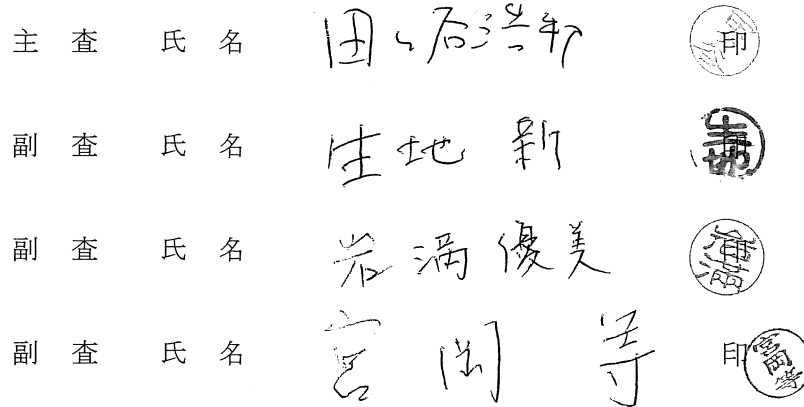 主 査 氏 名 田ヶ谷浩邦 印
副 査 氏 名 生地 新 印
副 査 氏 名 岩満優美 印
副 査 氏 名 宮岡 等 印